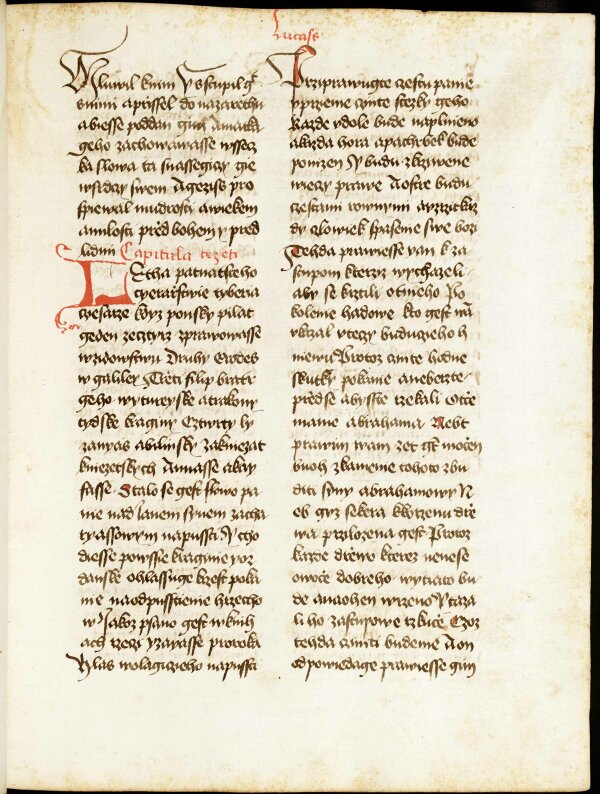 Lucass
Mluwil knim Y sstupil gt
snimi aprissel do nazarethu
abiesse poddan gim Amatka
geho zachowawasse wssecz
ka slowa ta snassegiczy gie
wsrdczy swem Agezijs pro
spiewal mudrosti awiekem
amilosti przed bohem y przed
lidmi Capitula trzeti
Letha patnatszeho
czyesarzstwie tyberia
czyesarze kdyz ponsky pilat
geden zecztyrz zprawowasse
wzidowstwu Druhy Erodes
w galilei Trzeti filip bratr
geho wytureyske atrakony
tydske kraginy Cztwrty ly
zanyas abilinsky zakniezat
kniezetskych Annasse akay
fasse Stalo se gest slowo pa
nie nad Janem synem zacha
tyassowym napussti Y przo
diesse powssie kragynie yor
danske ohlassuge krzest poka
nie naodpusstienie hrziecho
w Jakoz psano gest wknih
ach rzeczi yzayasse proroka
Hlas wolagiczieho napussti
Prziprawugte czestu panie
przieme czinte stezky geho
Kazde udole bude naplnieno
akazda hora apachrbek bude
ponizen Y budu zkrziwene
wieczy prawe Aostre budu
czestami rownymi ayzrzi kaz
dy czlowiek spasenie swe bozi
Tehda prawiesse pan k za
stupom kterziz wychazeli
aby se krztili otnieho Po
kolenie hadowe kto gest wam
ukazal uteczy buduczieho h
niewu Protoz czinte hodne
skutky pokanie anebeczte
przedse abysste rzekali Otcze
mame abrahama Nebt
prawim wam zet gt mocen
buoh zkamenie tohoto zbu
diti syny abrahamowy N
eb gyz sekera kkorzenu drze
wa przilozena gest Protoz
kazde drzewo kterez nenese
owocze dobreho wytiato bu
de anaohen wrzeno Y taza
li ho zastupowe rzkucze Czoz
tehda cziniti budeme Aon
odpowiedage prawiesse gim